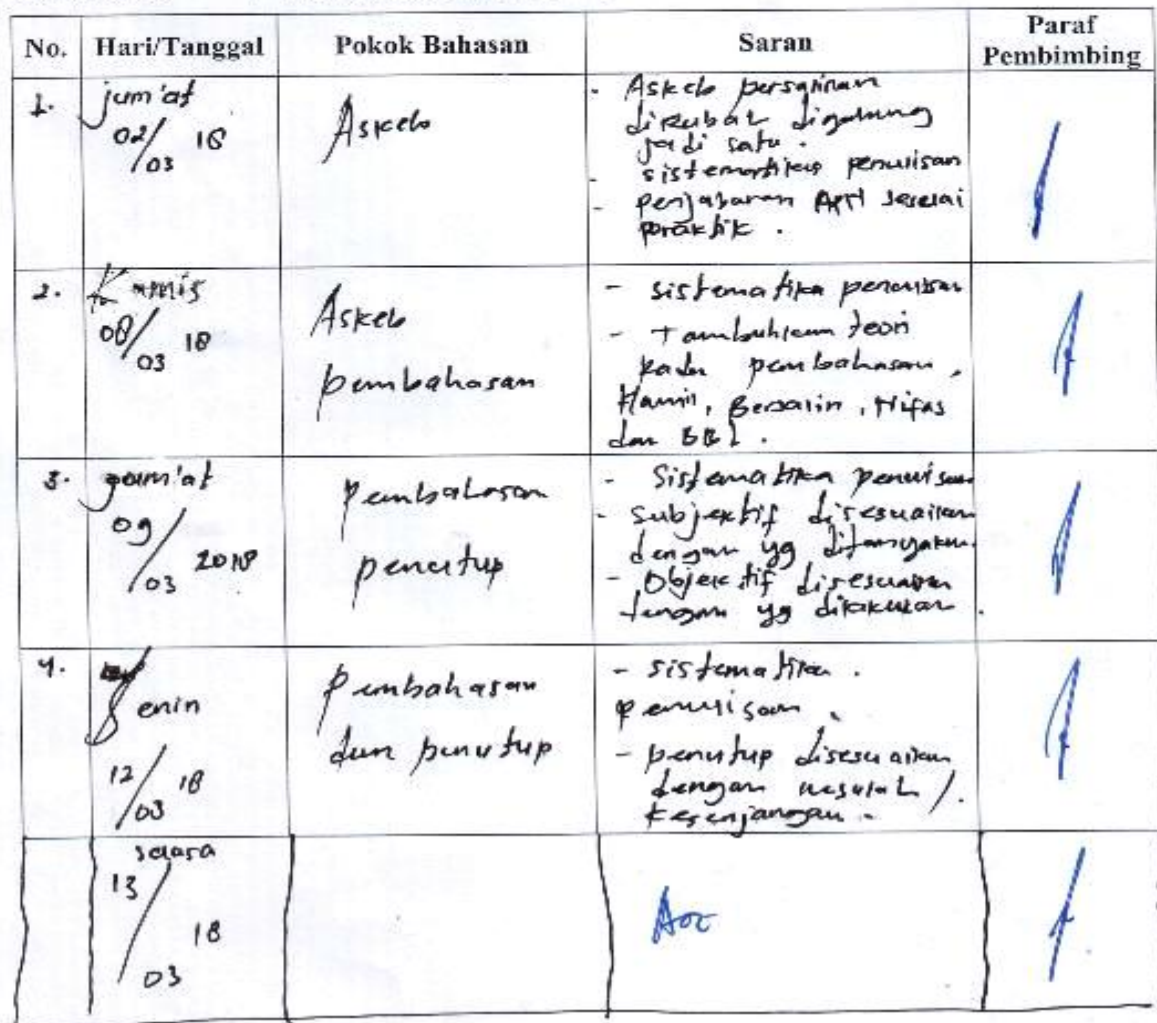 No. Hari/Tanggal Pokok Bahasan Saran Paraf Pembimbing
1. jum'at 02/03 18
Askeb
- Askeb persalinan
dirubah digabung
jadi satu.
- sistematika penulisan
- penjabaran APN sesuai
praktik.
2. Kamis 08/03 18
Askeb
pembahasan
- sistematika penulisan
- Tambahkan teori
pada pembahasan,
Hamil, Bersalin, Nifas
dan BBL.
3. jum'at 09/03 2018
pembahasan
penutup
- Sistematika penulisan
- subjektif disesuaikan
dengan yg ditanyakan
- Objektif disesuaikan
dengan yg dilakukan.
4. Senin
12/03 18
pembahasan
dan penutup
- sistematika.
penulisan.
- penutup disesuaikan
dengan masalah /
kesenjangan.
selasa
13/03 18
Acc